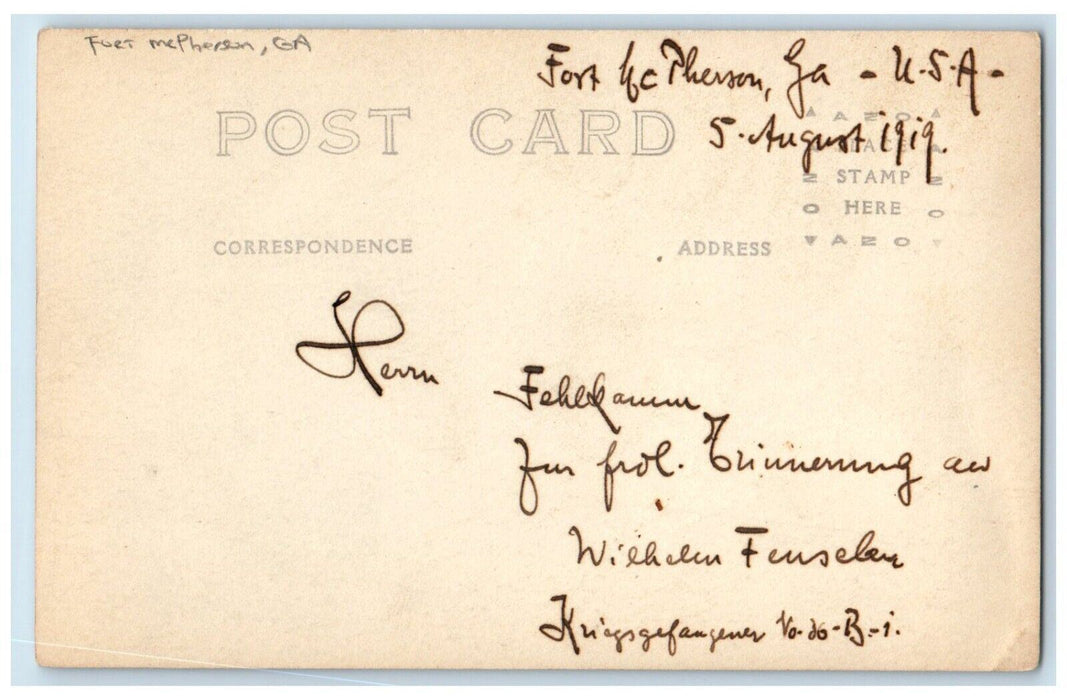 Fort McPherson, GA
Fort Mc Pherson, Ga - U.S.A -
5. August 1919.
POST CARD
AZO
PLACE
STAMP
HERE
AZO
CORRESPONDENCE
ADDRESS
Herrn
Fehlkamm
Zur frdl. Erinnerung an
Wilhelm Fenselau
Kriegsgefangener